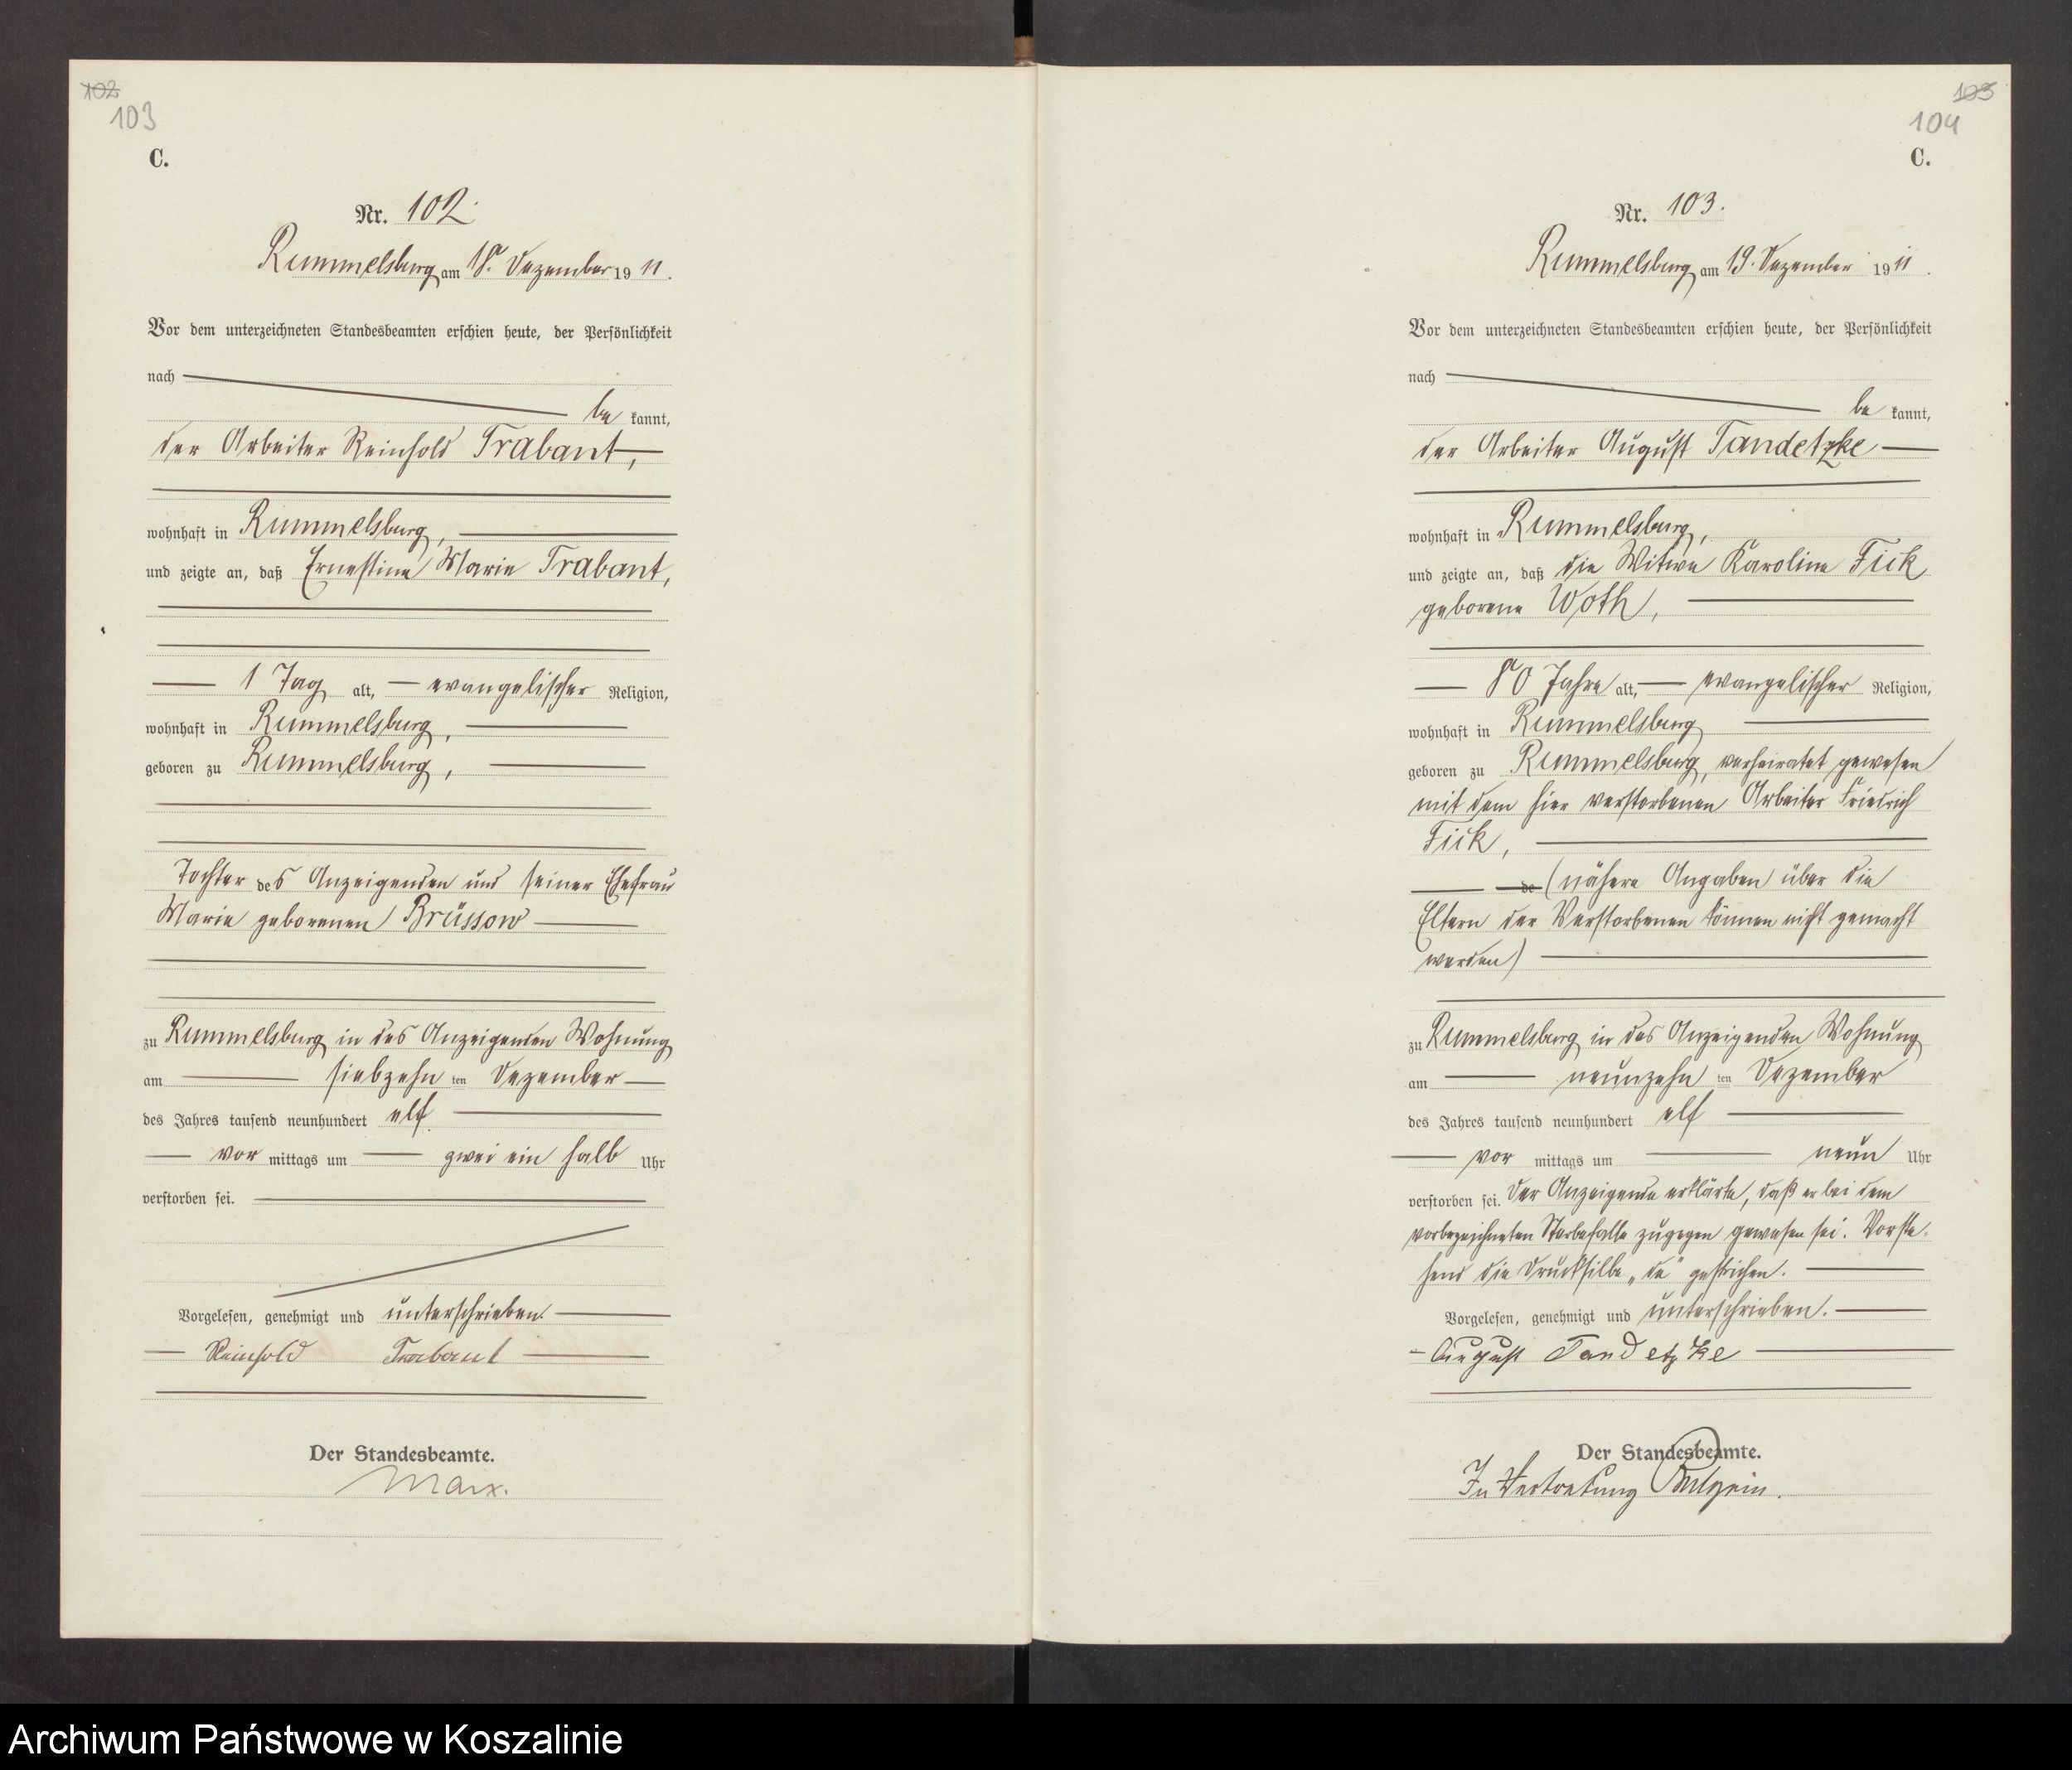 102
103
C.
Nr. 102.
Rummelsburg am 18. Dezember 19 11.
Vor dem unterzeichneten Standesbeamten erschien heute, der Persönlichkeit
nach
be kannt,
der Arbeiter Reinhold Trabant,
wohnhaft in Rummelsburg,
und zeigte an, daß Ernestine Marie Trabant,
1 Tag alt, evangelischer Religion,
wohnhaft in Rummelsburg,
geboren zu Rummelsburg,
Tochter des Anzeigenden und seiner Ehefrau
Marie geborenen Brüssow
zu Rummelsburg in des Anzeigenden Wohnung
am siebzehn ten Dezember
des Jahres tausend neunhundert elf
vor mittags um zwei ein halb Uhr
verstorben sei.
Vorgelesen, genehmigt und unterschrieben.
Reinhold Trabant
Der Standesbeamte.
Marx.
103
104
C.
Nr. 103.
Rummelsburg am 19. Dezember 19 11.
Vor dem unterzeichneten Standesbeamten erschien heute, der Persönlichkeit
nach
be kannt,
der Arbeiter August Tandetzke
wohnhaft in Rummelsburg,
und zeigte an, daß die Witwe Karoline Fick
geborene Woth,
80 Jahre alt, evangelischer Religion,
wohnhaft in Rummelsburg
geboren zu Rummelsburg, verheiratet gewesen
mit dem hier verstorbenen Arbeiter Friedrich
Fick,
de (nähere Angaben über die
Eltern der Verstorbenen können nicht gemacht
werden)
zu Rummelsburg in des Anzeigenden Wohnung
am neunzehn ten Dezember
des Jahres tausend neunhundert elf
vor mittags um neun Uhr
verstorben sei. Der Anzeigende erklärte, daß er bei dem
vorbezeichneten Sterbefalle zugegen gewesen sei. Vorste-
hend die Drucksilbe „de" gestrichen.
Vorgelesen, genehmigt und unterschrieben.
August Tandetzke
Der Standesbeamte.
In Vertretung
Archiwum Państwowe w Koszalinie